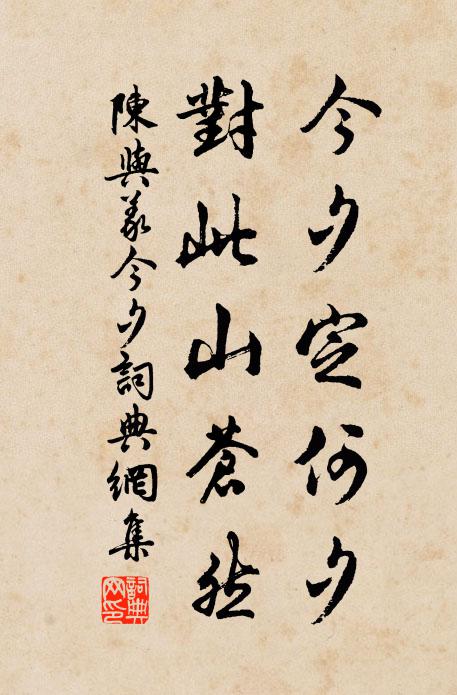 今夕定何夕
對此山蒼然
陳與義今夕詞典網集
詞典網印